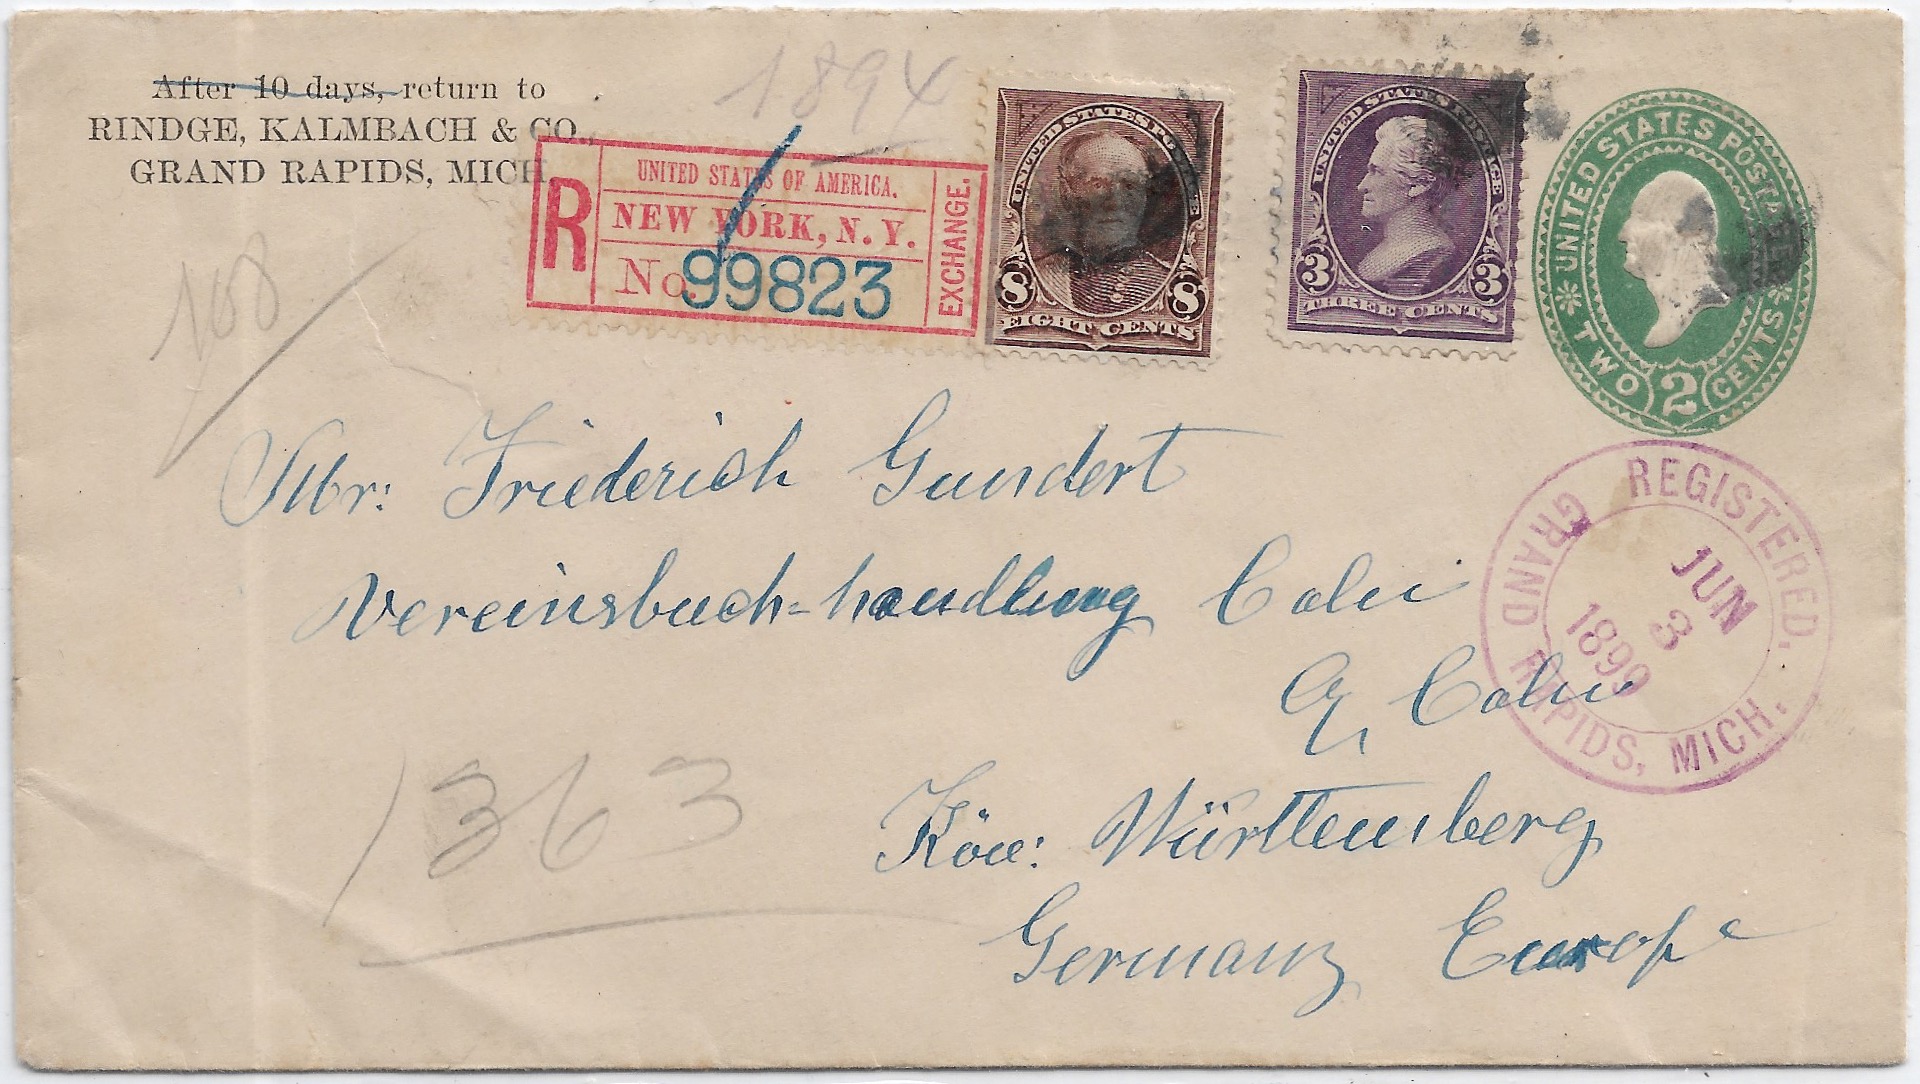 After 10 days, return to
RINDGE, KALMBACH & CO.,
GRAND RAPIDS, MICH
1894
R
UNITED STATES OF AMERICA.
NEW YORK, N. Y.
No. 99823
EXCHANGE.
UNITED STATES POSTAGE
8 8
EIGHT CENTS
UNITED STATES POSTAGE
3 3
THREE CENTS
UNITED STATES POSTAGE
TWO 2 CENTS
108
Mr: Friederich Gundert
Vereinsbuch-handlung Calw
Calw
Württemberg
Germany Europe
1363
REGISTERED,
GRAND RAPIDS, MICH.
JUN
3
1899